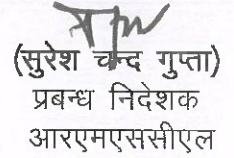 (सुरेश चन्द गुप्ता)
प्रबन्ध निदेशक
आरएमएससीएल